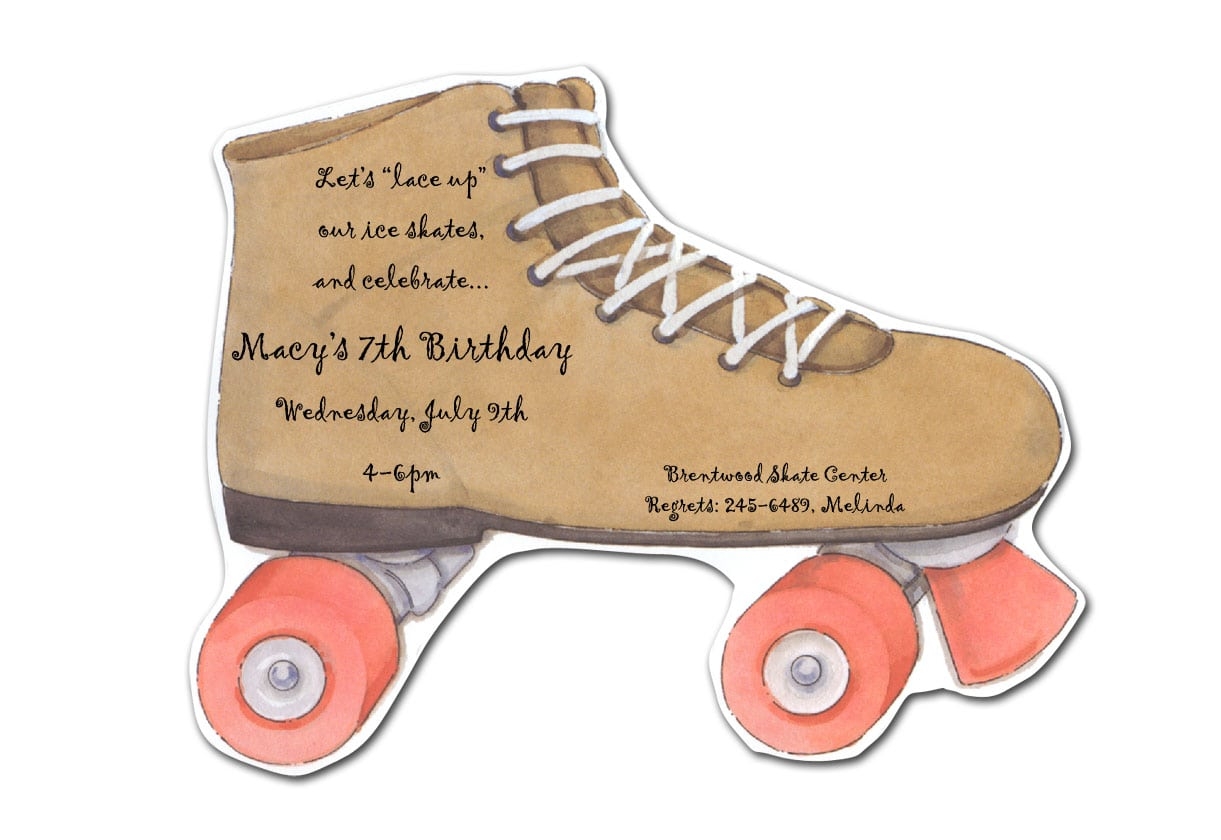 Let's “lace up”
our ice skates,
and celebrate...
Macy's 7th Birthday
Wednesday, July 9th
4-6pm
Brentwood Skate Center
Regrets: 245-6489, Melinda